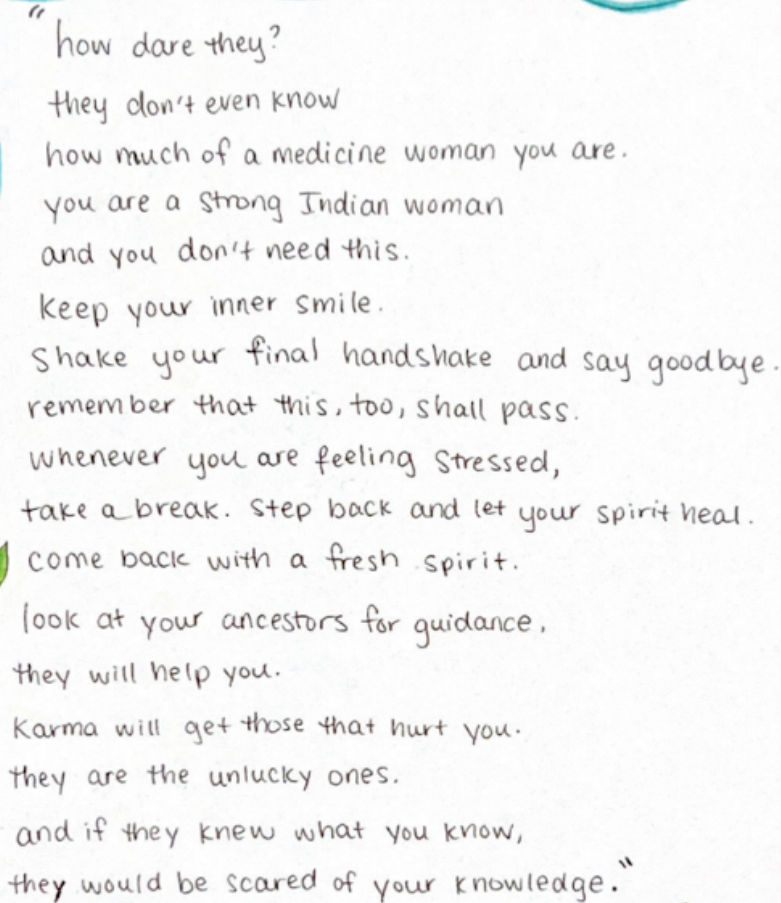 "how dare they?
they don't even know
how much of a medicine woman you are.
you are a strong Indian woman
and you don't need this.
keep your inner smile.
Shake your final handshake and say goodbye.
remember that this, too, shall pass.
whenever you are feeling stressed,
take a break. Step back and let your spirit heal.
come back with a fresh spirit.
look at your ancestors for guidance,
they will help you.
Karma will get those that hurt you.
they are the unlucky ones.
and if they knew what you know,
they would be scared of your knowledge."